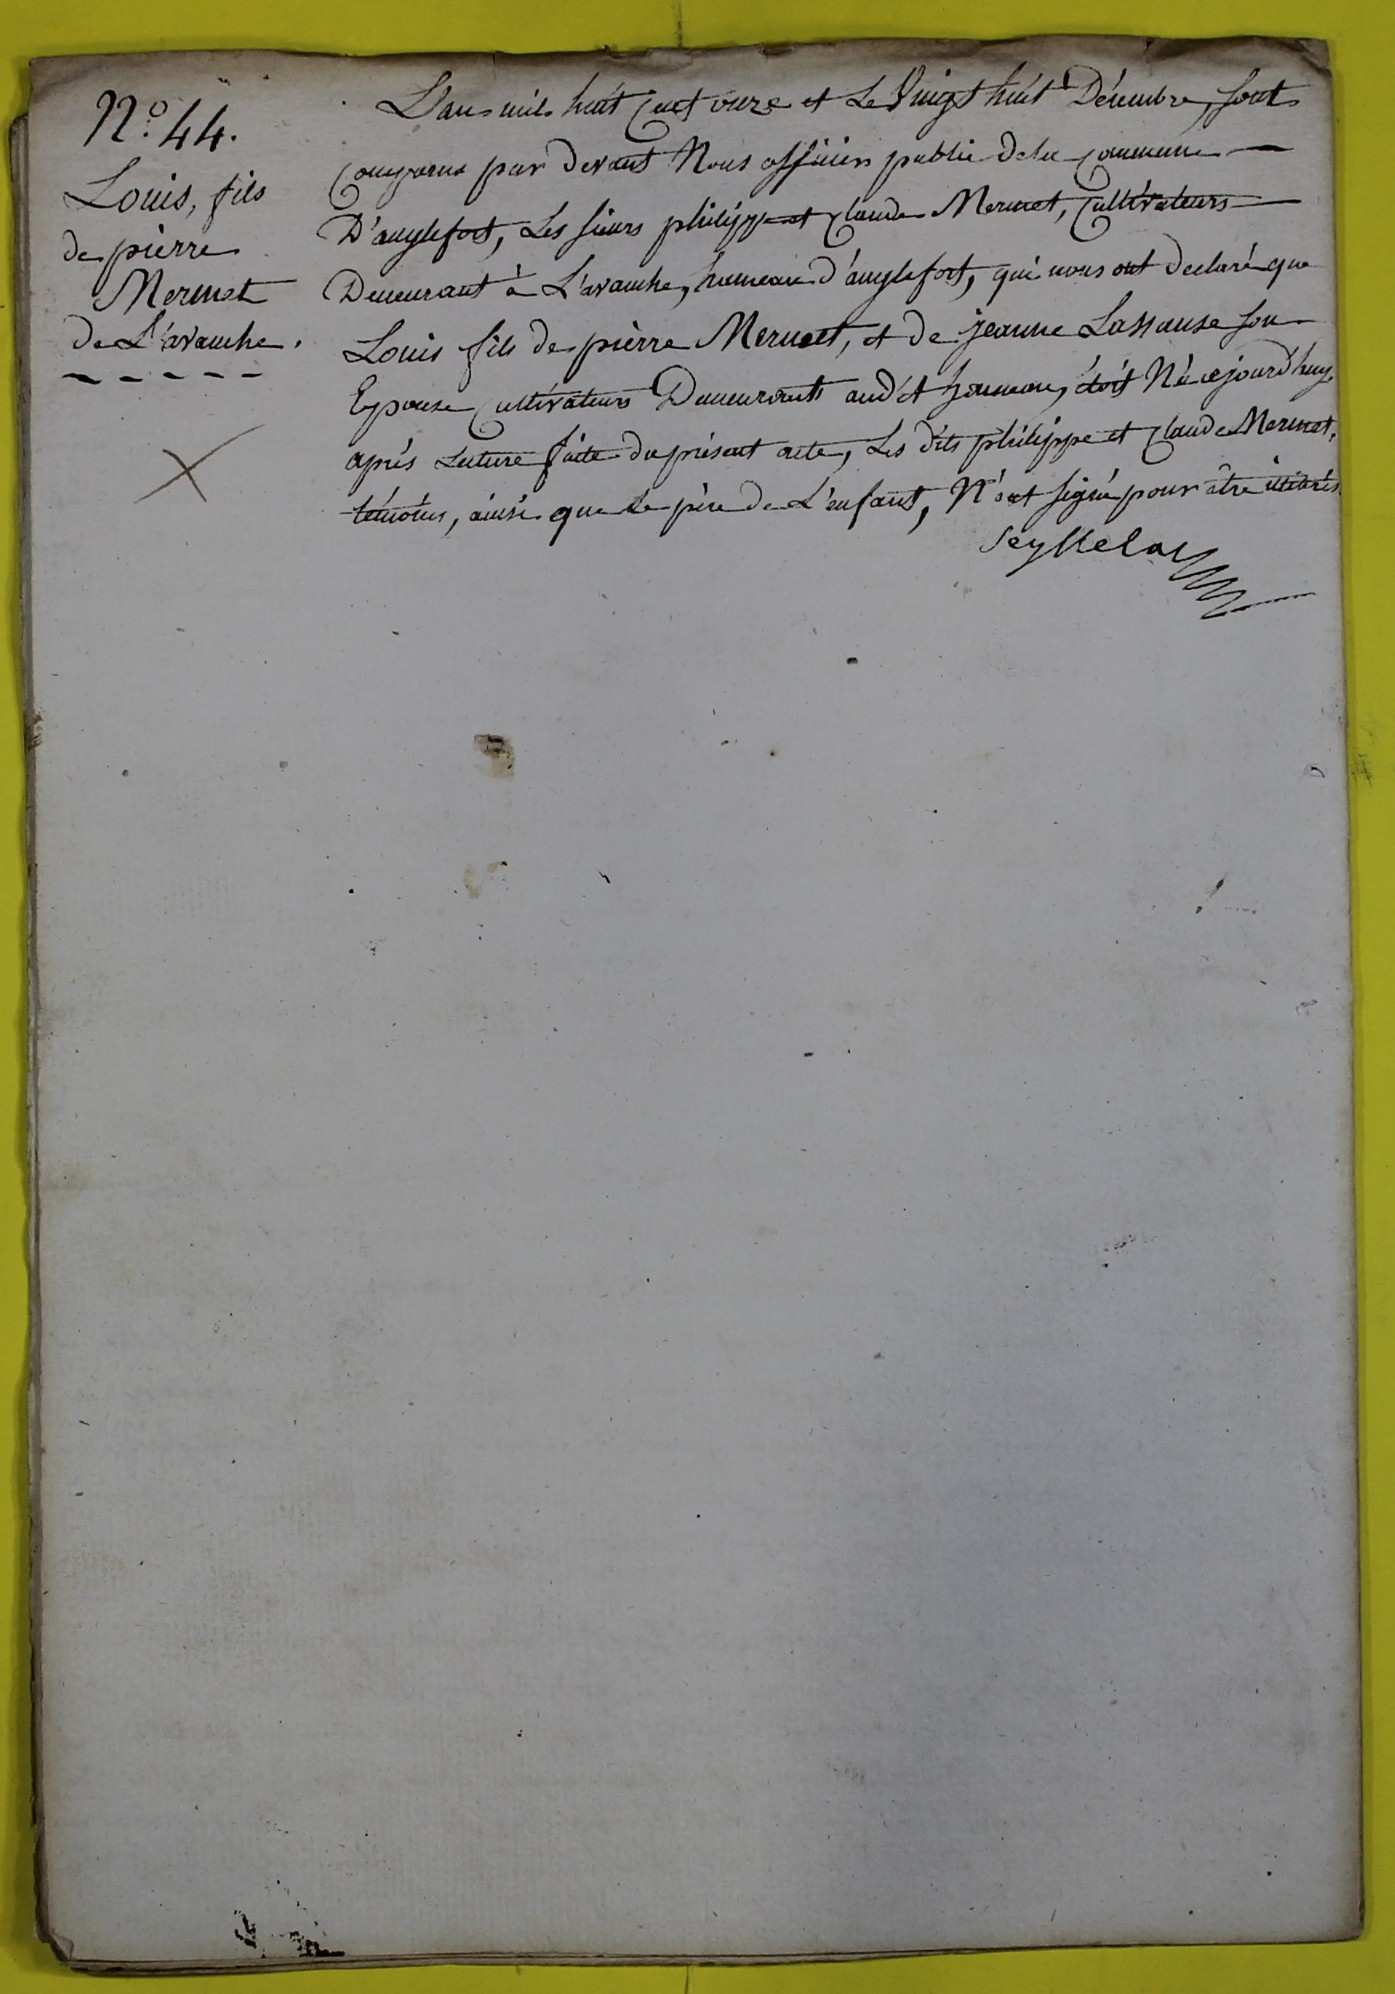 N.° 44.
Louis, fils
de pierre
Mermet
de L'avanche.
L'an mil huit cent onze et Le Vingt huit Décembre, sont
comparus par devant Nous officier public de la commune
D'anglefort, Les sieurs philippe et claude Mermet, Cultivateurs
Demeurant à L'avanche, hameau d'anglefort, qui nous ont declaré que
Louis fils de pierre Mermet, et de jeanne Lassause son
Epouse Cultivateurs Demeurants aud't hameau, étoit Né cejourd'huy.
après Lecture faite du présent acte, Les dits philippe et claude Mermet,
témoins, ainsi que Le père de L'enfant, N'ont signé pour être illitérés.